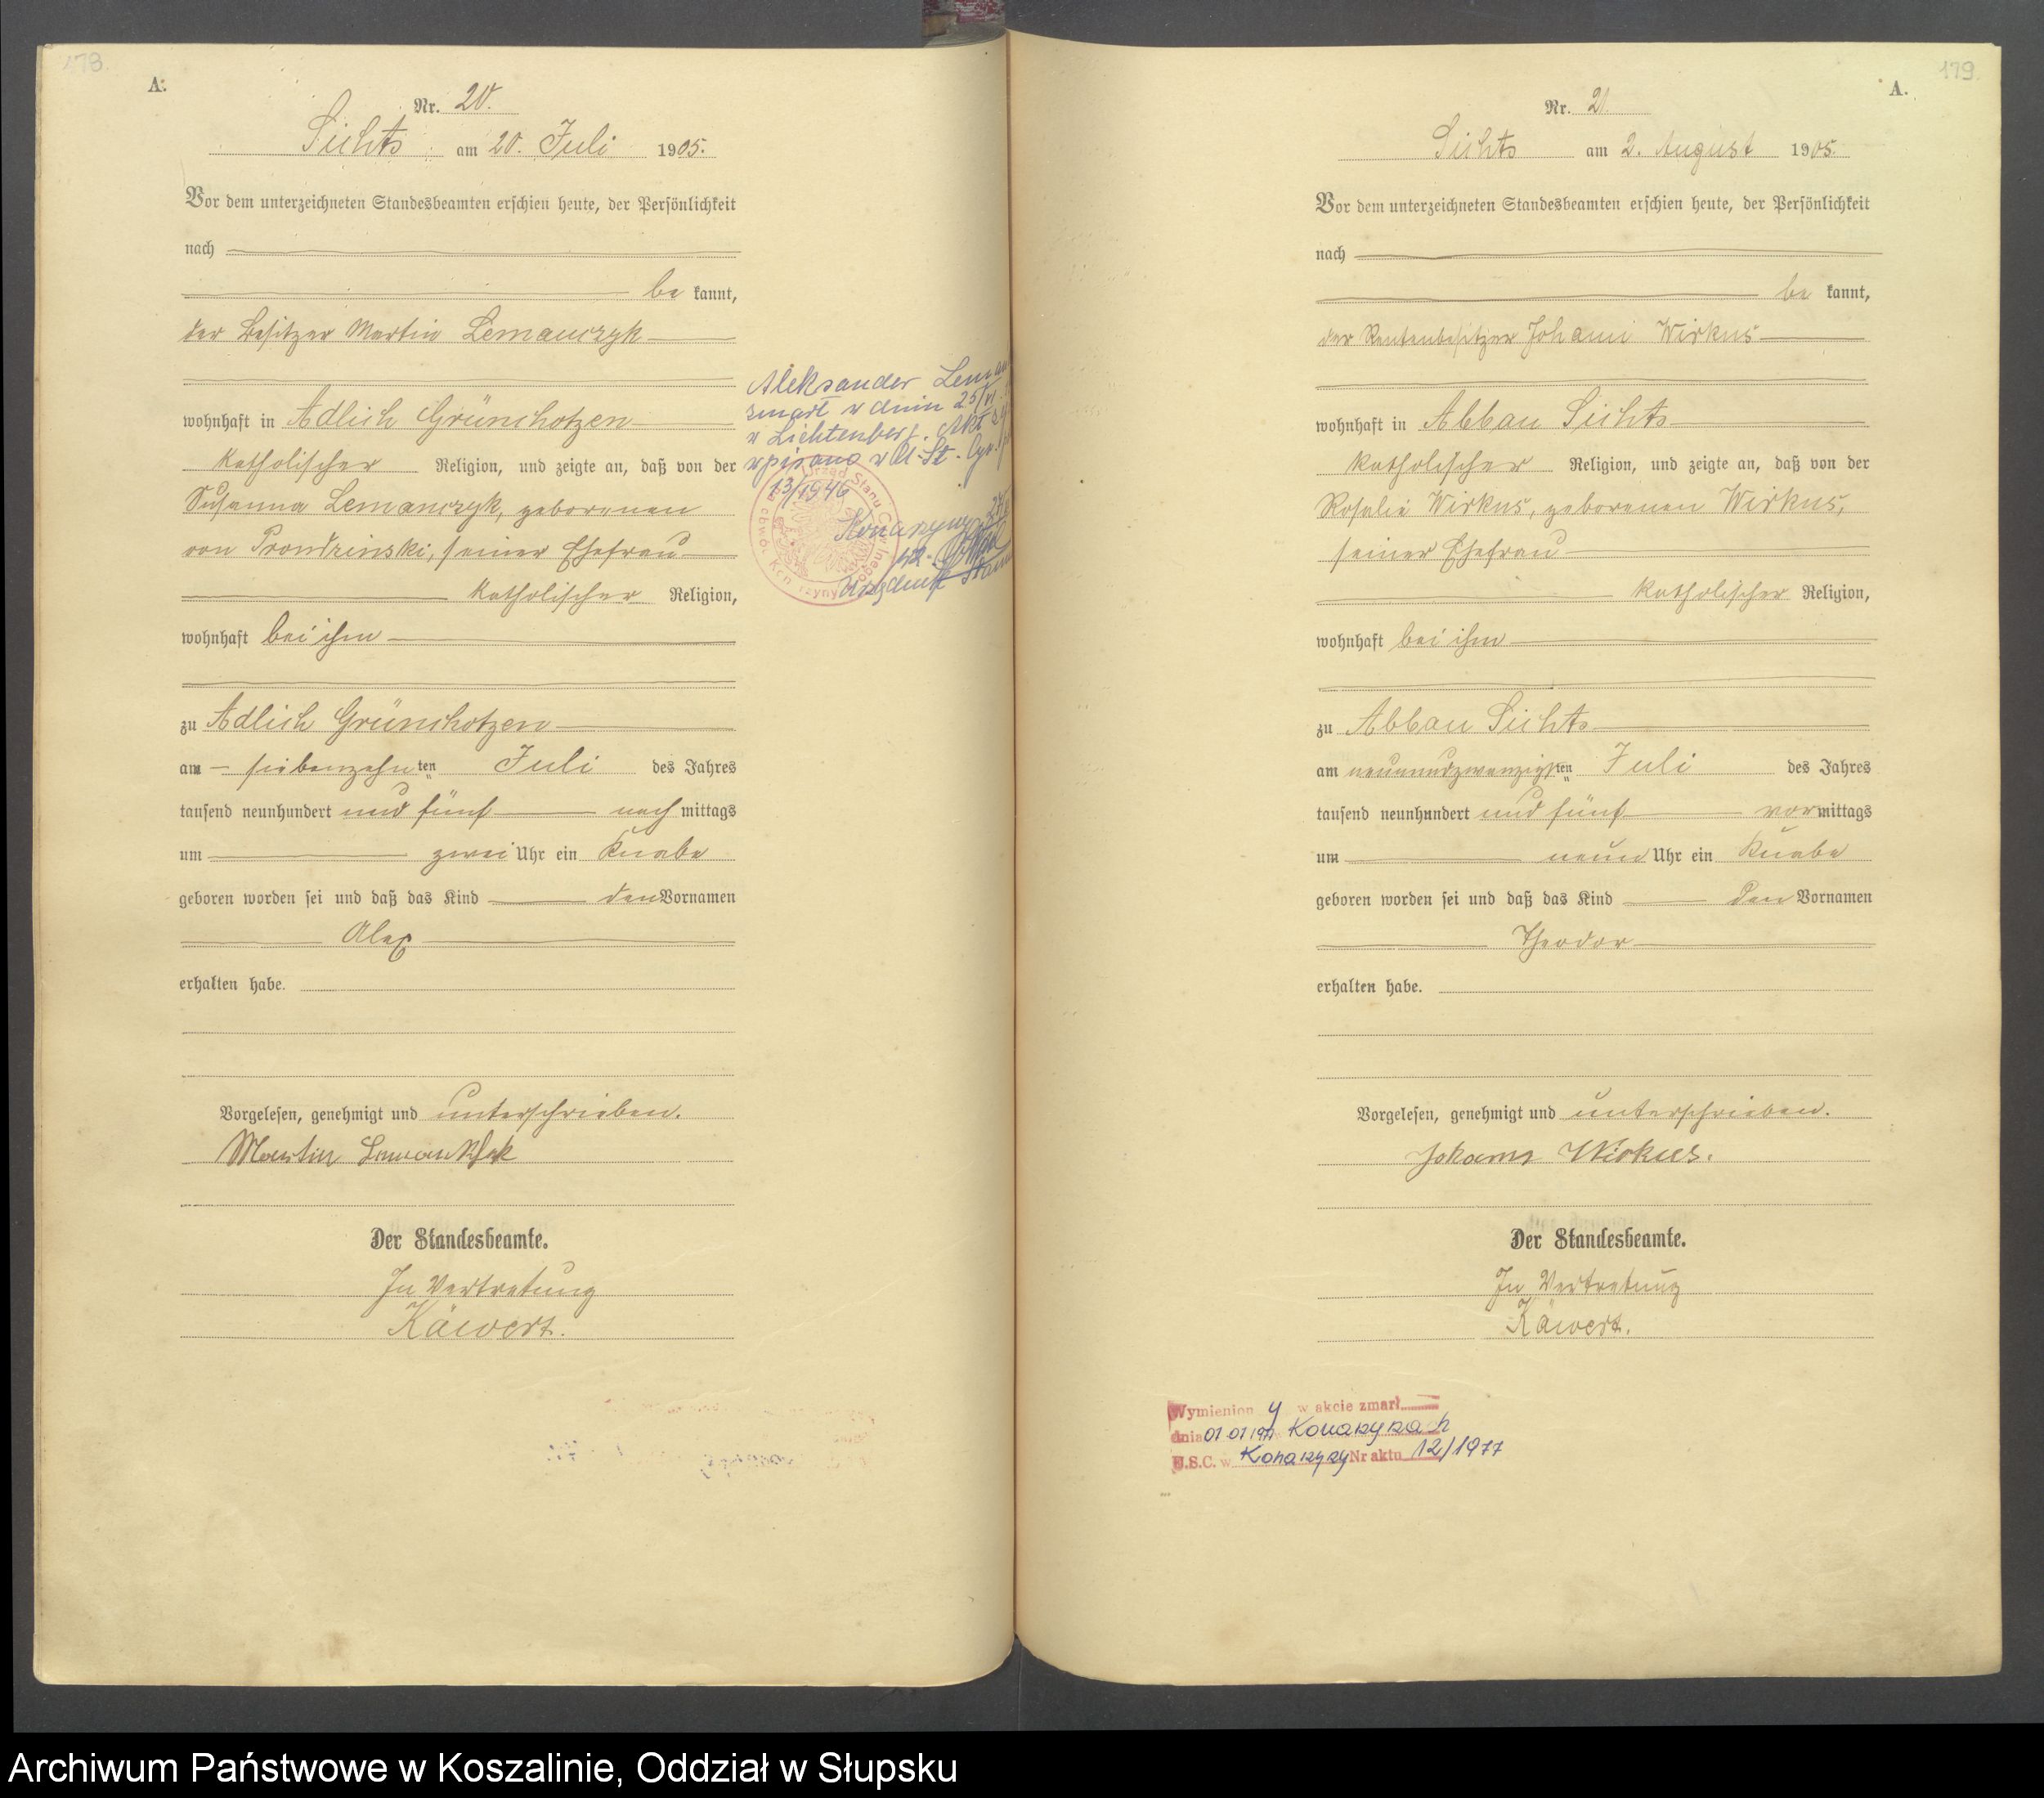 178.
A.
Nr. 20.
Sichts am 20. Juli 1905.
Vor dem unterzeichneten Standesbeamten erschien heute, der Persönlichkeit
nach
be kannt,
der Besitzer Martin Lemanczyk
wohnhaft in Adlich Grünchotzen
katholischer Religion, und zeigte an, daß von der
Susanna Lemanczyk, geborenen
von Prondzinski, seiner Ehefrau
katholischer Religion,
wohnhaft bei ihm
zu Adlich Grünchotzen
am siebenzehnten Juli des Jahres
tausend neunhundert und fünf nachmittags
um zwei Uhr ein Knabe
geboren worden sei und daß das Kind den Vornamen
Alex
erhalten habe.
Vorgelesen, genehmigt und unterschrieben.
Martin
Der Standesbeamte.
In Vertretung
Käwert.
Aleksander
zmarł w dniu 25/VI
w Lichtenberg. Akt
wpisano w
13/1946
Konarzyny
Urzędnik Stanu
179.
A.
Nr. 21.
Sichts am 2. August 1905.
Vor dem unterzeichneten Standesbeamten erschien heute, der Persönlichkeit
nach
be kannt,
der Rentenbesitzer Johann Wirkus
wohnhaft in Abbau Sichts
katholischer Religion, und zeigte an, daß von der
Rosalie Wirkus, geborenen Wirkus,
seiner Ehefrau
katholischer Religion,
wohnhaft bei ihm
zu Abbau Sichts
am neunundzwanzigsten Juli des Jahres
tausend neunhundert und fünf vormittags
um neun Uhr ein Knabe
geboren worden sei und daß das Kind den Vornamen
Theodor
erhalten habe.
Vorgelesen, genehmigt und unterschrieben.
Johann Wirkus.
Der Standesbeamte.
In Vertretung
Käwert.
Wymienion y w akcie zmarł
dnia 01 01 1977 w Konarzynach
U.S.C. w Konarzyny Nr aktu 12/1977
Archiwum Państwowe w Koszalinie, Oddział w Słupsku